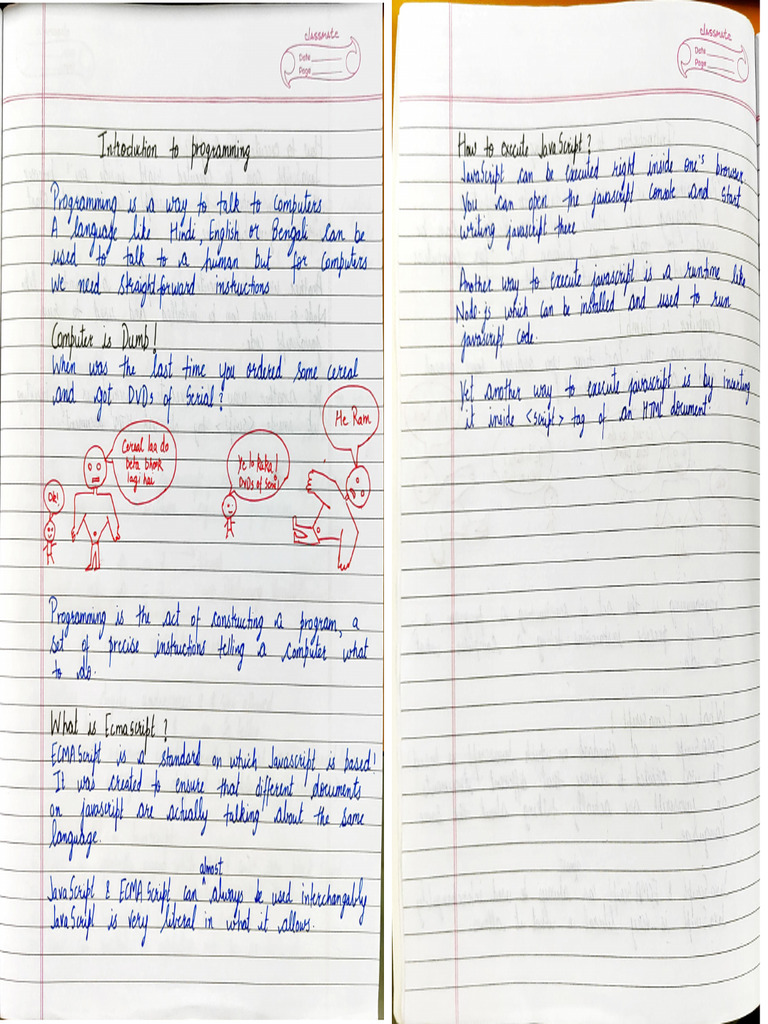 classmate
Date
Page
Introduction to programming
Programming is a way to talk to computers
A language like Hindi, English or Bengali can be
used to talk to a human but for computers
we need straightforward instructions
Computer is Dumb!
When was the last time you ordered some cereal
and got DVDs of serial?
He Ram
Cereal laa do
beta bhook
lagi hai
Ye lo Kaka!
DVDs of serial
Ok!
Programming is the act of constructing a program, a
set of precise instructions telling a computer what
to do.
What is Ecmascript?
ECMAScript is a standard on which Javascript is based!
It was created to ensure that different documents
on javascript are actually talking about the same
language.
almost
JavaScript & ECMAScript can ^ always be used interchangably
JavaScript is very liberal in what it allows.
classmate
Date
Page
How to execute JavaScript?
JavaScript can be executed right inside one's browser.
You can open the javascript console and start
writing javascript there
Another way to execute javascript is a runtime like
Node.js which can be installed and used to run
javascript code.
Yet another way to execute javascript is by inserting
it inside <script> tag of an HTML document.